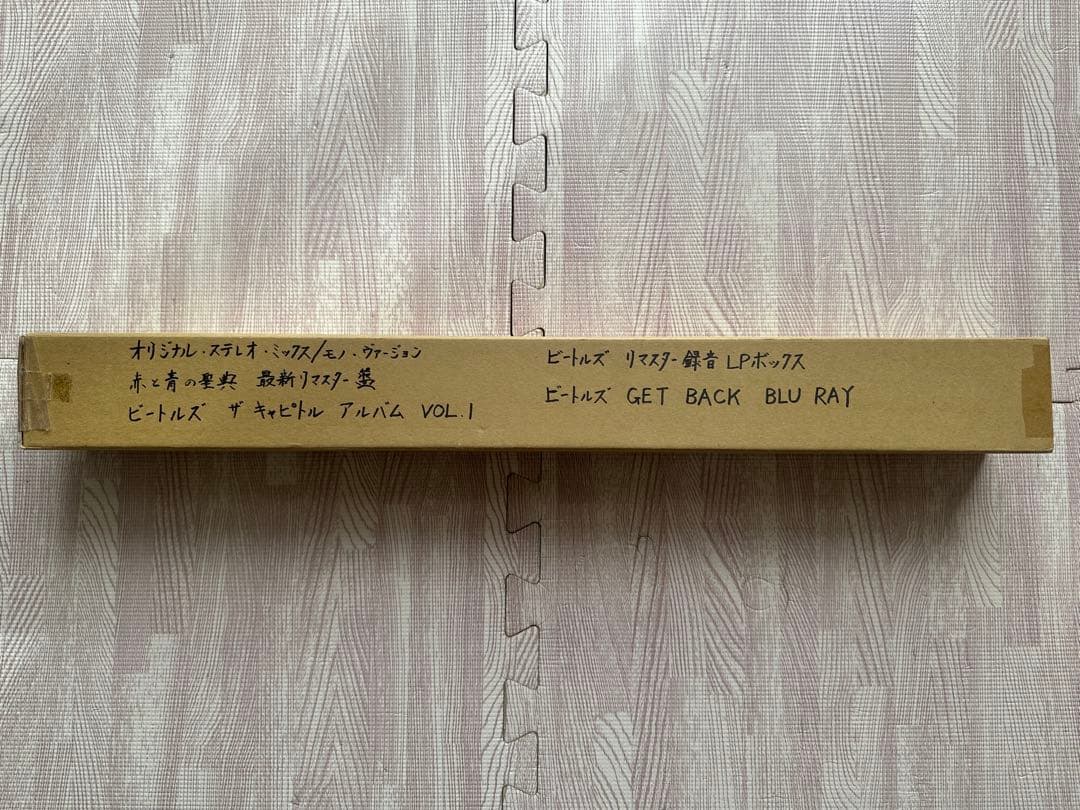 オリジナル・ステレオ・ミックス/モノ・ヴァージョン
赤と青の聖典 最新リマスター盤
ビートルズ ザ キャピトル アルバム VOL.1
ビートルズ リマスター録音 LPボックス
ビートルズ GET BACK BLU RAY